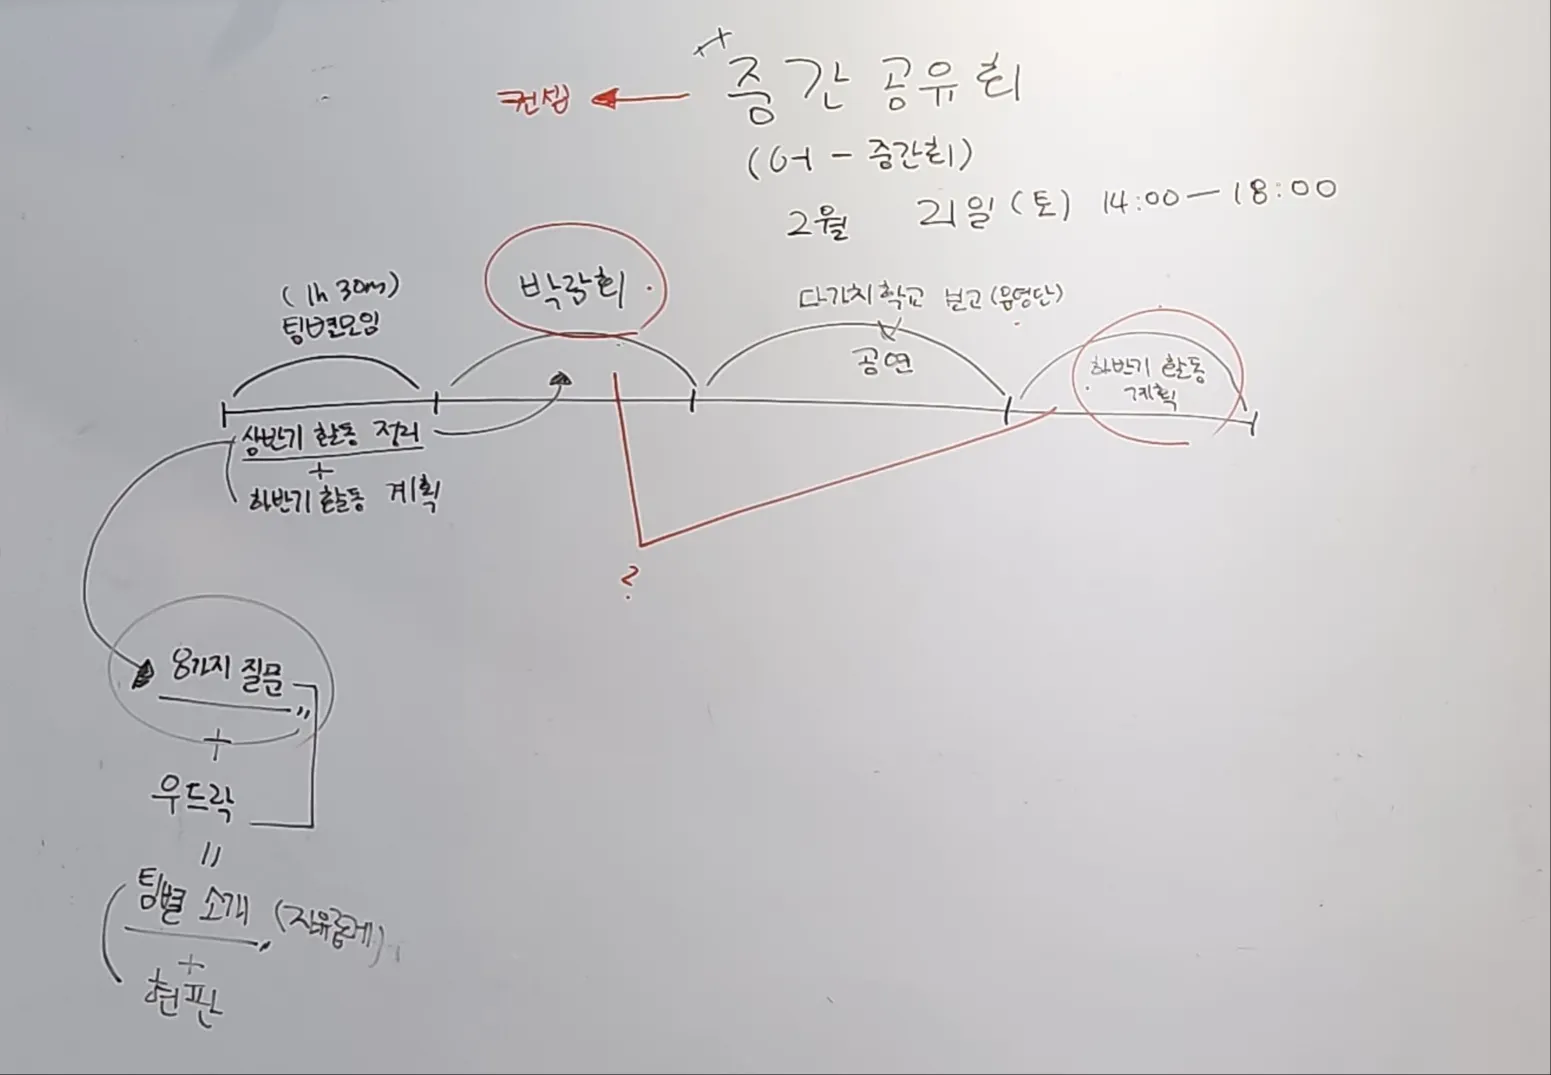 중간 공유회
컨셉
(어 - 중간회)
2월 21일 (토) 14:00 - 18:00
(1h 30m)
팀별모임
박람회
다가치학교 보고 (운영단)
공연
하반기 활동
계획
상반기 활동 정리
+
하반기 활동 계획
?
8가지 질문
+
우드락
=
팀별 소개 (자유롭게)
+
현판